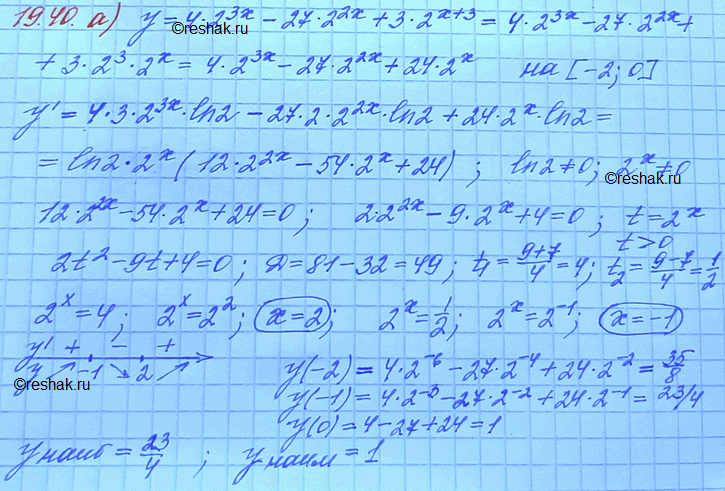 19.40. а) y = 4·2^{3x} - 27·2^{2x} + 3·2^{x+3} = 4·2^{3x} - 27·2^{2x} +
+ 3·2^3·2^x = 4·2^{3x} - 27·2^{2x} + 24·2^x на [-2; 0]
©reshak.ru
y' = 4·3·2^{3x}·ln2 - 27·2·2^{2x}·ln2 + 24·2^x·ln2 =
= ln2·2^x (12·2^{2x} - 54·2^x + 24) ; ln2≠0; 2^x≠0
©reshak.ru
12·2^{2x} - 54·2^x + 24 = 0 ; 2·2^{2x} - 9·2^x + 4 = 0 ; t = 2^x
t > 0
2t^2 - 9t + 4 = 0; D = 81 - 32 = 49; t_1 = \frac{9+7}{4} = 4; t_2 = \frac{9-7}{4} = \frac{1}{2}
©reshak.ru
2^x = 4; 2^x = 2^2; x = 2; 2^x = \frac{1}{2}; 2^x = 2^{-1}; x = -1
y' + - +
y ↗ -1 ↘ 2 ↗
©reshak.ru
y(-2) = 4·2^{-6} - 27·2^{-4} + 24·2^{-2} = \frac{35}{8}
y(-1) = 4·2^{-3} - 27·2^{-2} + 24·2^{-1} = 23/4
y(0) = 4 - 27 + 24 = 1
©reshak.ru
y наиб = \frac{23}{4} ; y наим = 1